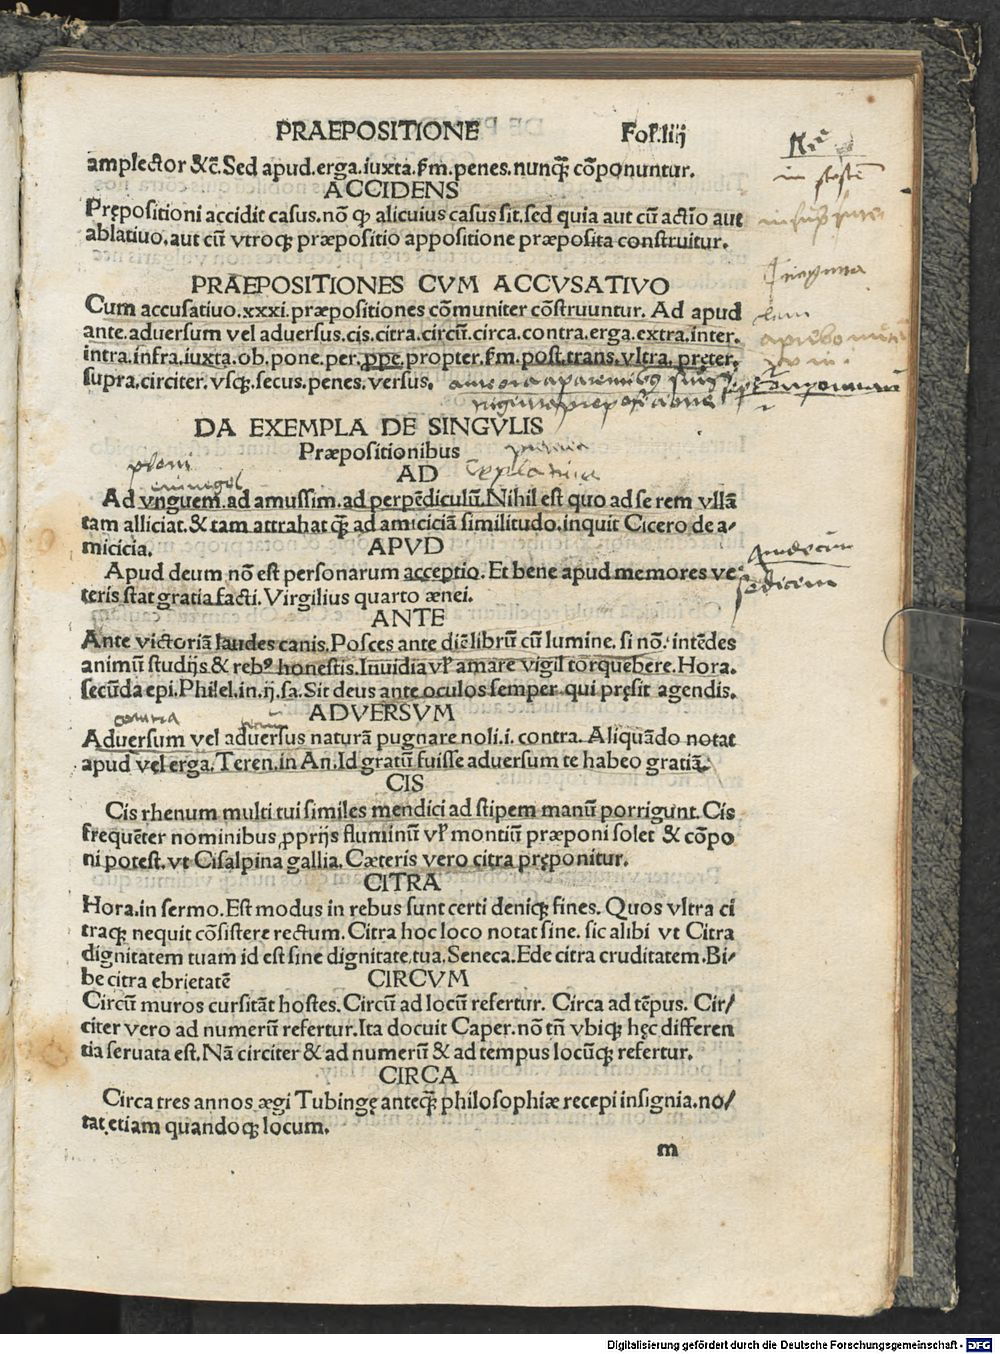 PRAEPOSITIONE Fol.liij
amplector &c̄. Sed apud. erga. iuxta. ẜm. penes. nunqꝫ̄ cōponuntur.
ACCIDENS
Prępositioni accidit casus. nō ꝙ alicuius casus sit. sed quia aut cū actīo aut
ablatiuo. aut cū vtroqꝫ præpositio appositione præposita construitur.
PRAEPOSITIONES CVM ACCVSATIVO
Cum accusatiuo. xxxi. præpositiones cōmuniter cōstruuntur. Ad apud
ante. aduersum vel aduersus. cis. citra. circū. circa. contra. erga. extra. inter.
intra. infra. iuxta. ob. pone. per. ꝓpe. propter. ẜm. post. trans. vltra. pręter.
supra. circiter. vsqꝫ. secus. penes. versus.
DA EXEMPLA DE SINGVLIS
Præpositionibus
AD
Ad vnguem. ad amussim. ad perpēdiculū. Nihil est quo ad se rem vllā
tam alliciat. & tam attrahat qꝫ̄ ad amiciciā similitudo. inquit Cicero de a-
micicia. APVD
Apud deum nō est personarum acceptio. Et bene apud memores ve-
teris stat gratia facti. Virgilius quarto ænei.
ANTE
Ante victoriā laudes canis. Posces ante diē librū cū lumine. si nō: intēdes
animū studijs. & rebꝰ honestis. Inuidia vł amare vigil torquebere. Hora.
secūda epi. Philel. in. ij. sa. Sit deus ante oculos semper. qui pręsit agendis.
ADVERSVM
contra
Aduersum vel aduersus naturā pugnare noli. i. contra. Aliquādo notat
apud vel erga. Teren. in An. Id gratū fuisse aduersum te habeo gratiā.
CIS
Cis rhenum multi tui similes mendici ad stipem manū porrigunt. Cis
frequēter nominibus ꝓprijs fluminū vł montiū præponi solet & cōpo
ni potest. vt Cisalpina gallia. Cæteris vero citra pręponitur.
CITRA
Hora. in sermo. Est modus in rebus sunt certi deniqꝫ fines. Quos vltra ci
traqꝫ nequit cōsistere rectum. Citra hoc loco notat sine. sic alibi vt Citra
dignitatem tuam id est sine dignitate tua. Seneca. Ede citra cruditatem. Bi-
be citra ebrietatē CIRCVM
Circū muros cursitāt hostes. Circū ad locū refertur. Circa ad tēpus. Cir/
citer vero ad numerū refertur. Ita docuit Caper. nō tn̄ vbiqꝫ hęc differen
tia seruata est. Nā circiter & ad numerū & ad tempus locūqꝫ refertur.
CIRCA
Circa tres annos ægi Tubingę anteqꝫ̄ philosophiæ recepi insignia. no/
tat etiam quandoqꝫ locum.
m
Digitalisierung gefördert durch die Deutsche Forschungsgemeinschaft - DFG